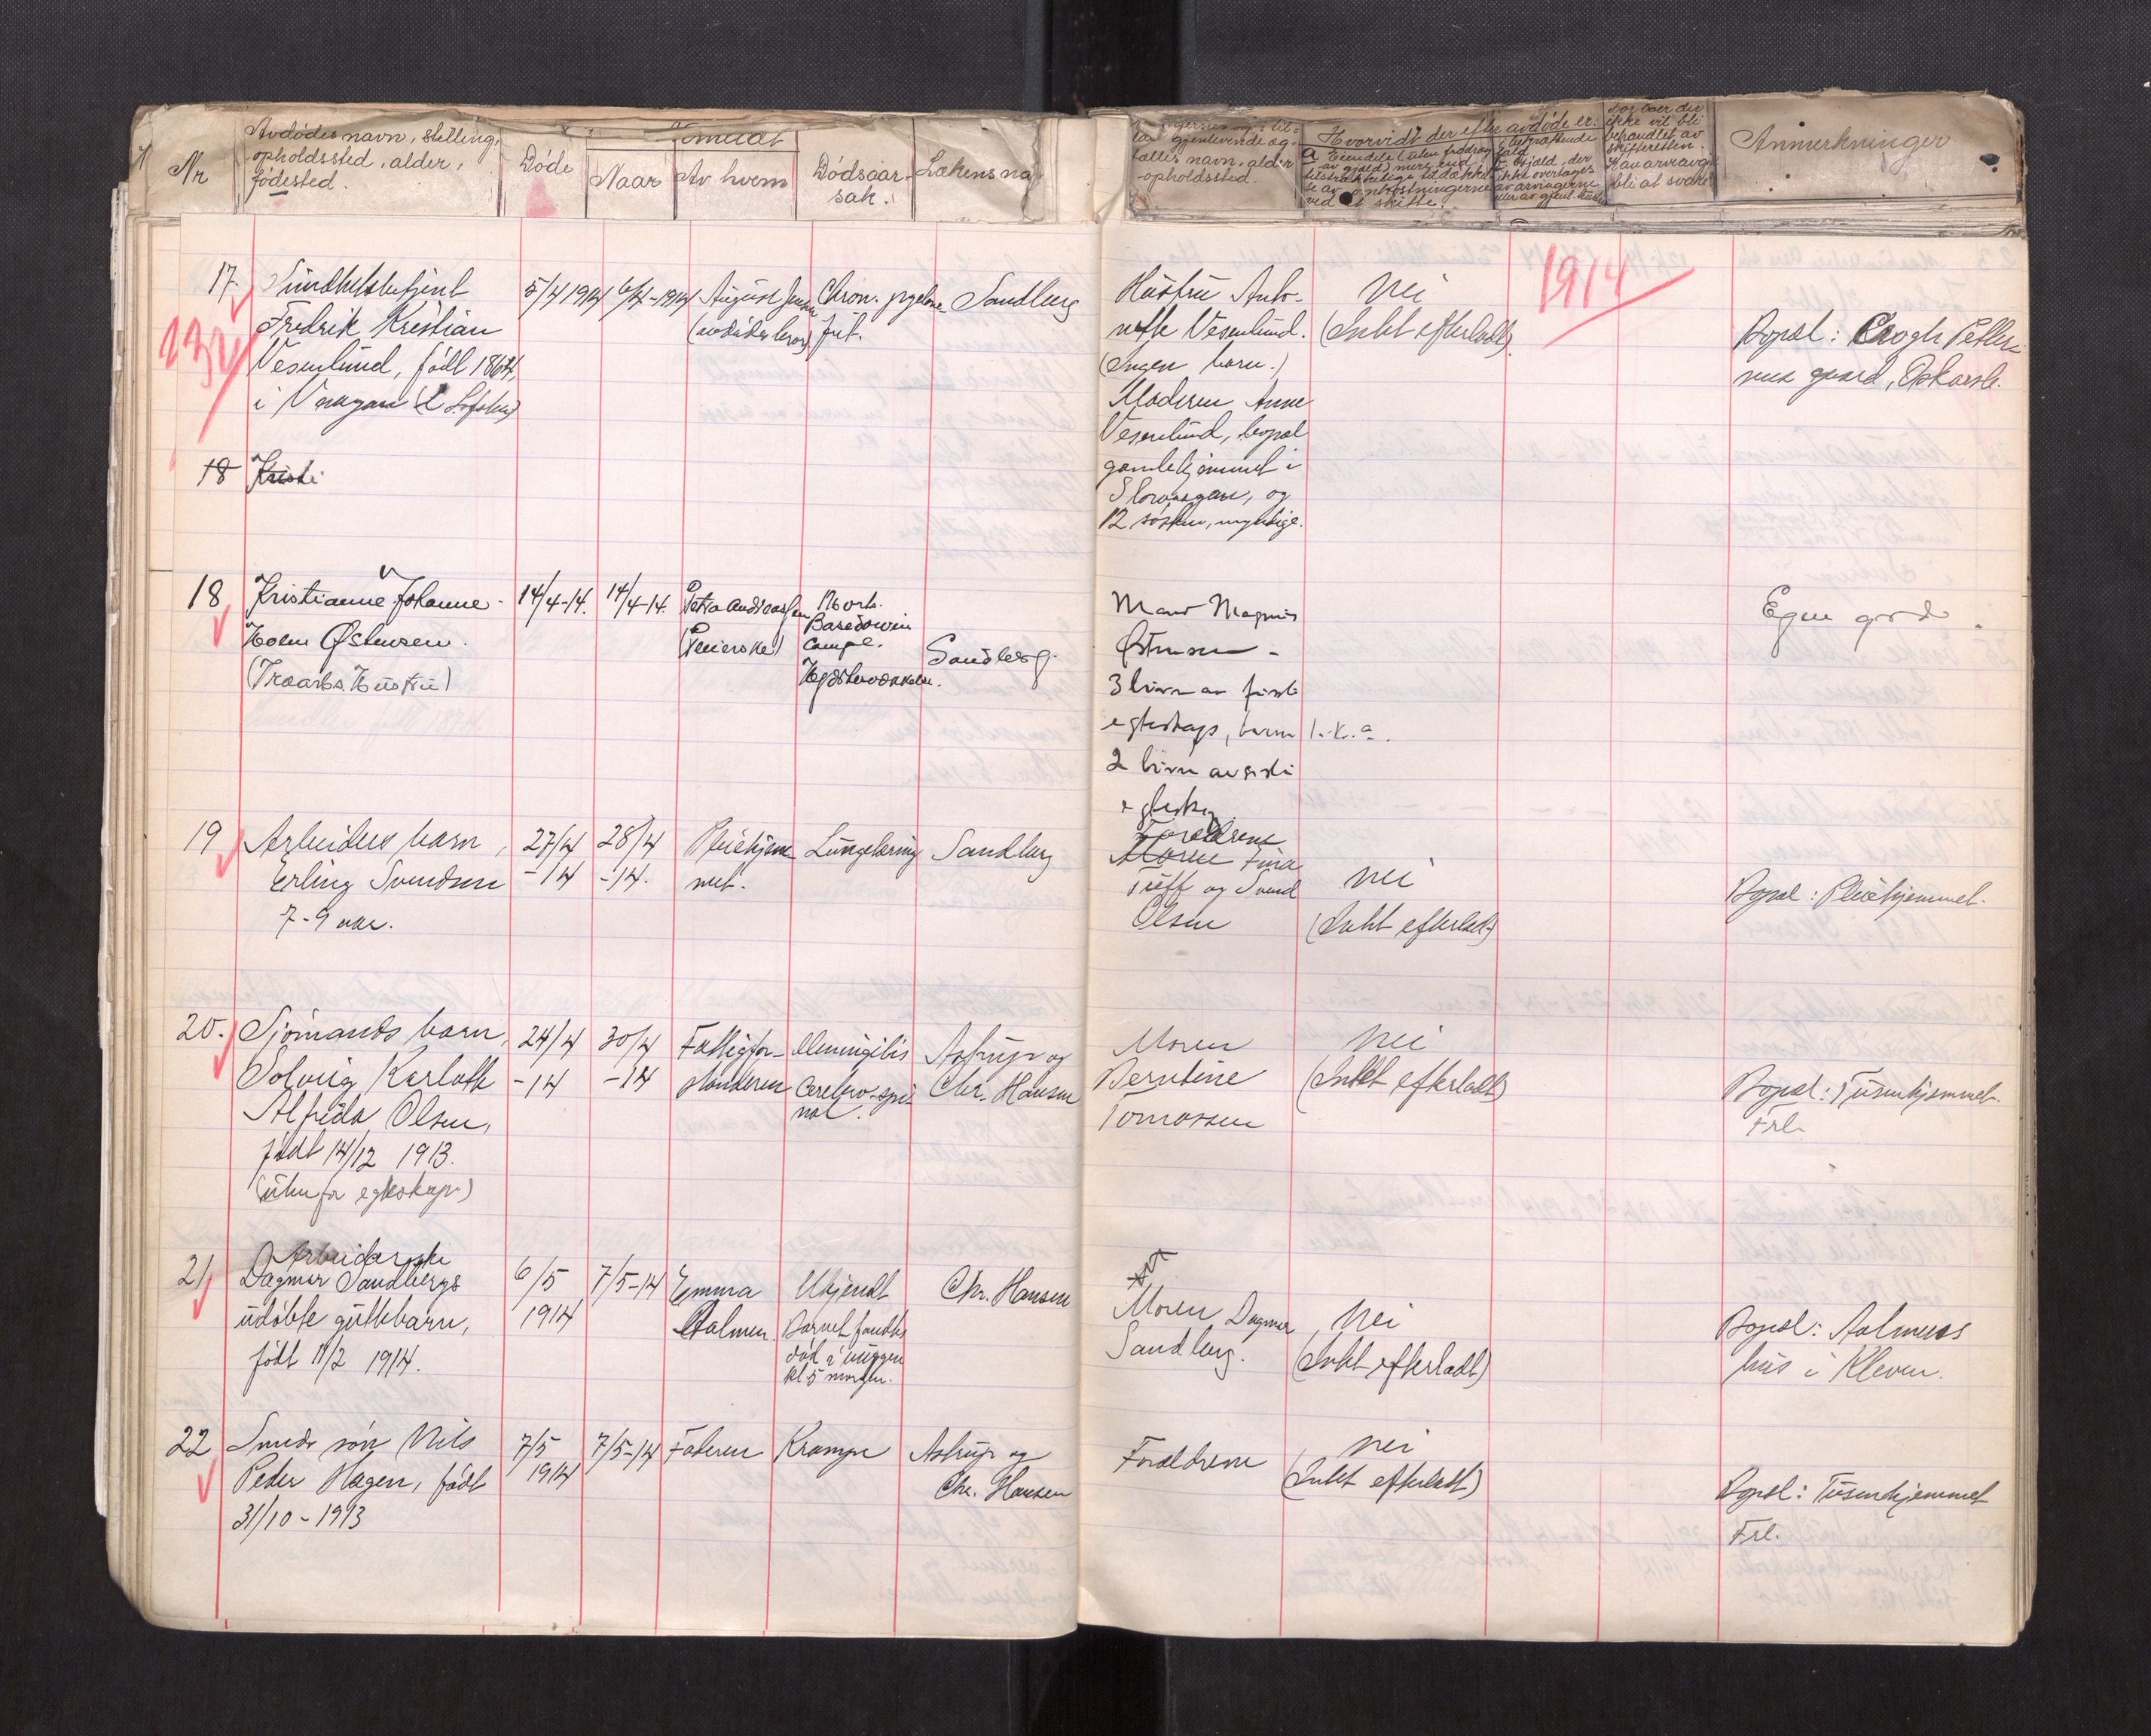 Nr
Avdødes navn, stilling,
opholdssted, alder,
fødested.
Døde
Naar
Av hvem
Dødsaar-
sak.
Lækens na
tællis navn, alder
-opholdssted.
Hvorvidt der efter avdøde er:
ved et skifte.
ikke vil bli
behandlet av
skifteretten.
bli at svare
Anmerkninger
1914
17.
Fredrik Kristian
Vesenlund, født 1864,
i
5/4 1914
6/4-1914
August
Chron.
Sandberg
Hustru Anto-
nette Vesenlund.
(Ingen barn.)
Moderen Anne
Vesenlund, bopæl
gamlehjemmet i
og
12 søsken, myndige.
nei
(Intet efterladt)
Bopæl:
gaard,
232
18
Kristi
18
Kristianne Johanne
Holm Østensen.
(Traarbs. Hustru)
14/4-14.
14/4-14.
Petra Andreassen
(Pleierske)
Morb.
Basedowii
compl.
Sandberg.
Mand Magnus
Østensen
3 barn av første
egteskap, barn
2 barn av siste
Egen gård.
19
Arbeiders barn,
Erling Svendsen
7-9 mdr.
27/4
-14
28/4
-14.
Pleiehjem-
met.
Lungebetændelse
Sandberg
Forældrene
Moren Tina
Tuff og Svend
Olsen
nei
(Intet efterladt)
Bopæl: Pleiehjemmet.
20.
Sjømands barn,
Solveig Karlotte
Alfrida Olsen,
født 14/12 1913.
(utenfor egteskap.)
24/4
-14
30/4
-14
Fattigfor-
standeren
Meningitis
Cerebro-spi-
nal.
Astrup og
Chr. Hansen
Moren
Berntine
Tomassen
nei
(Intet efterladt)
Bopæl: Tusenhjemmet.
Frl.
21
Arbeiderske
Dagmar Sandbergs
udøbte guttebarn,
født 11/2 1914.
6/5
1914
7/5-14
Emma
Ukjendt
Barnet fandtes
død i vuggen
kl. 5 morgen.
Chr. Hansen
Moren Dagmar
Sandberg.
nei
(Intet efterladt)
Bopæl:
hus i Kleven.
22
Smeds søn Nils
Peder Hagen, født
31/10-1913
7/5
1914
7/5-14
Faderen
Krampe
Astrup og
Chr. Hansen
Forældrene
nei
(Intet efterladt)
Bopæl: Tusenhjemmet
Frl.